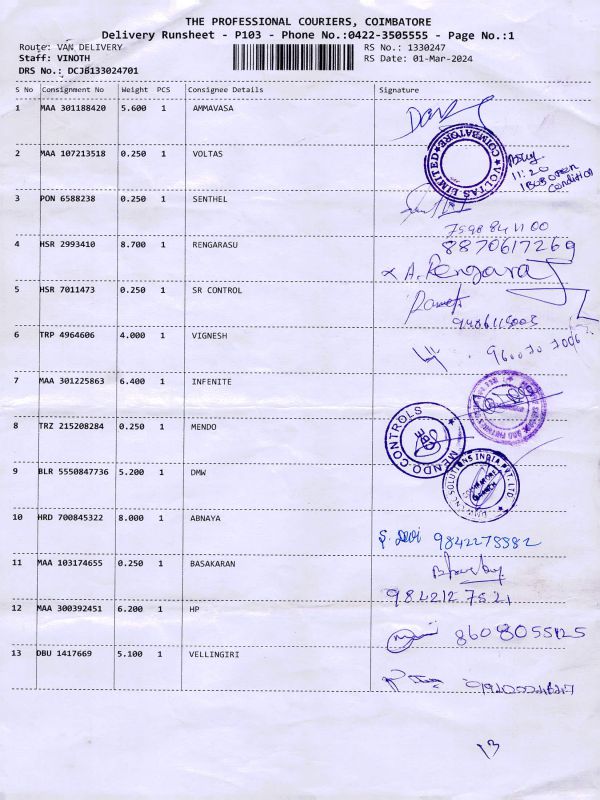 THE PROFESSIONAL COURIERS, COIMBATORE
Delivery Runsheet - P103 - Phone No.:0422-3505555 - Page No.:1
Route: VAN DELIVERY RS No.: 1330247
Staff: VINOTH RS Date: 01-Mar-2024
DRS No.: DCJB133024701
S No Consignment No Weight PCS Consignee Details Signature
1 MAA 301188420 5.600 1 AMMAVASA
2 MAA 107213518 0.250 1 VOLTAS
VOLTAS LIMITED COIMBATORE
11:20
1 BOB open
condition
3 PON 6588238 0.250 1 SENTHEL
4 HSR 2993410 8.700 1 RENGARASU
8870617269
x A. Rengaraj
5 HSR 7011473 0.250 1 SR CONTROL
6 TRP 4964606 4.000 1 VIGNESH
7 MAA 301225863 6.400 1 INFENITE
8 TRZ 215208284 0.250 1 MENDO
MENDO-CONTROLS CBE
9 BLR 5550847736 5.200 1 DMW
SOLUTIONS INDIA PVT. LTD
10 HRD 700845322 8.000 1 ABNAYA
S. Devi 9842275582
11 MAA 103174655 0.250 1 BASAKARAN
9842127521
12 MAA 300392451 6.200 1 HP
8608055125
13 DBU 1417669 5.100 1 VELLINGIRI
13